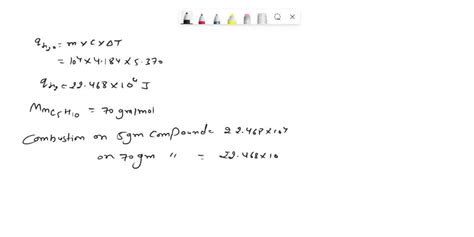 q H2O = m x C x ΔT
= 10⁴ x 4.184 x 5.370
q H2O = 22.468 x 10⁴ J
Mm C5H10 = 70 gram/mol
Combustion on 5gm compound = 22.468 x 10⁴
on 70gm " = 22.468 x 10